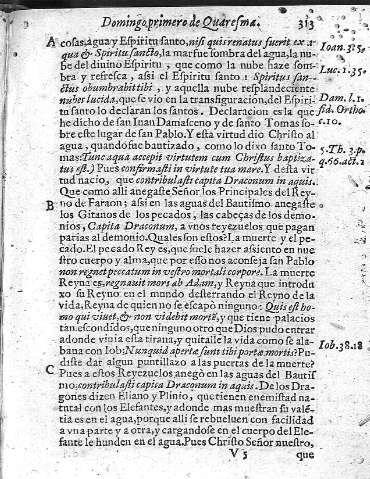 Domingo primero de Quaresma. 313
A cosas, agua y Espiritu santo, nisi quis renatus fuerit ex a
qua & Spiritu sancto, la mar fue sombra del agua, la nu
be del diuino Espiritu, que como la nube haze som-
bra y refresca, assi el Espiritu santo: Spiritus san-
ctus obumbrabit tibi, y aquella nube resplandeciente
nubes lucida, que se vio en la transfiguracion, del Espiri
tu santo lo declaran los santos. Declaracion es la que
he dicho de san Iuan Damasceno y de santo Tomas so
bre este lugar de san Pablo. Y esta virtud dio Christo al
agua, quando fue bautizado, como lo dixo santo To-
mas: Tunc aqua accepit virtutem cum Christus baptiza-
tus est.) Pues confirmasti in virtute tua mare. Y desta vir
tud nacio, que contribulasti capita Draconum in aquis.
Que como alli anegaste Señor los Principales del Rey-
no de Faraon; assi en las aguas del Bautismo anegaste
B los Gitanos de los pecados, las cabeças de los demo-
nios, Capita Draconum, a vnos reyezuelos que pagan
parias al demonio. Quales son estos? La muerte y el pe-
cado. El pecado Rey es, que suele hazer assiento en nue
stro cuerpo y alma, que por esso nos aconseja san Pablo
non regnet peccatum in vestro mortali corpore. La muerte
Reyna es, regnauit mors ab Adam, y Reyna que introdu
xo su Reyno en el mundo desterrando el Reyno de la
vida, Reyna de quien no se escapò ninguno: Quis est ho-
mo qui viuet, & non videbit mortē, y que tiene palacios
tan escondidos, que ninguno otro que Dios pudo entrar
adonde viuia esta tirana, y quitalle la vida como se ala-
bana con Iob: Nunquid apertæ sunt tibi portæ mortis? Pu-
diste dar algun puntillazo a las puertas de la muerte?
C Pues a estos Reyezuelos anegò en las aguas del Bautis
mo: contribulasti capita Draconum in aquis. De los Dra-
gones dizen Eliano y Plinio, que tienen enemistad na-
tutal con los Elefantes, y adonde mas muestran su valē-
tia es en el agua, porque alli se rebuelen con facilidad
a vna parte y a otra, y cargandose en el cuerpo del Ele-
fante le hunden en el agua. Pues Christo Señor nuestro,
V 5 que
Ioan. 3.5.
Luc. 1.35.
Dam. l. 1.
fid. Ortho
c. 10.
5. Th. 3. p.
q. 66. art. 2
Iob. 38. 18